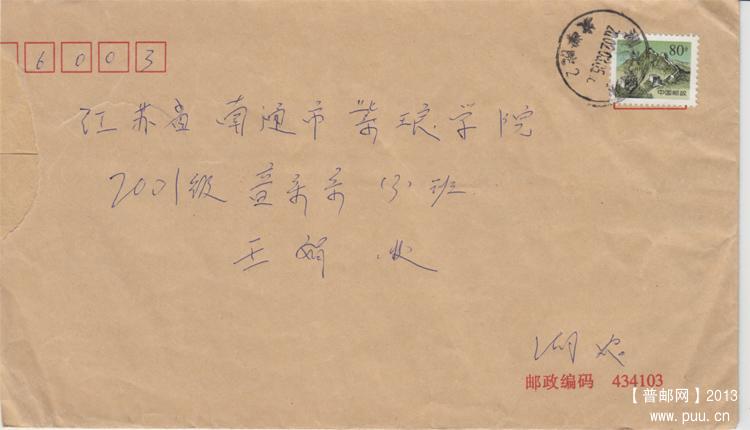 6 0 0 3
80分
中国邮政
江苏省 南通市 紫琅学院
2001级 童亲亲 (3) 班
王娟 收
湖农
邮政编码 434103
【普邮网】2013
www.puu.cn